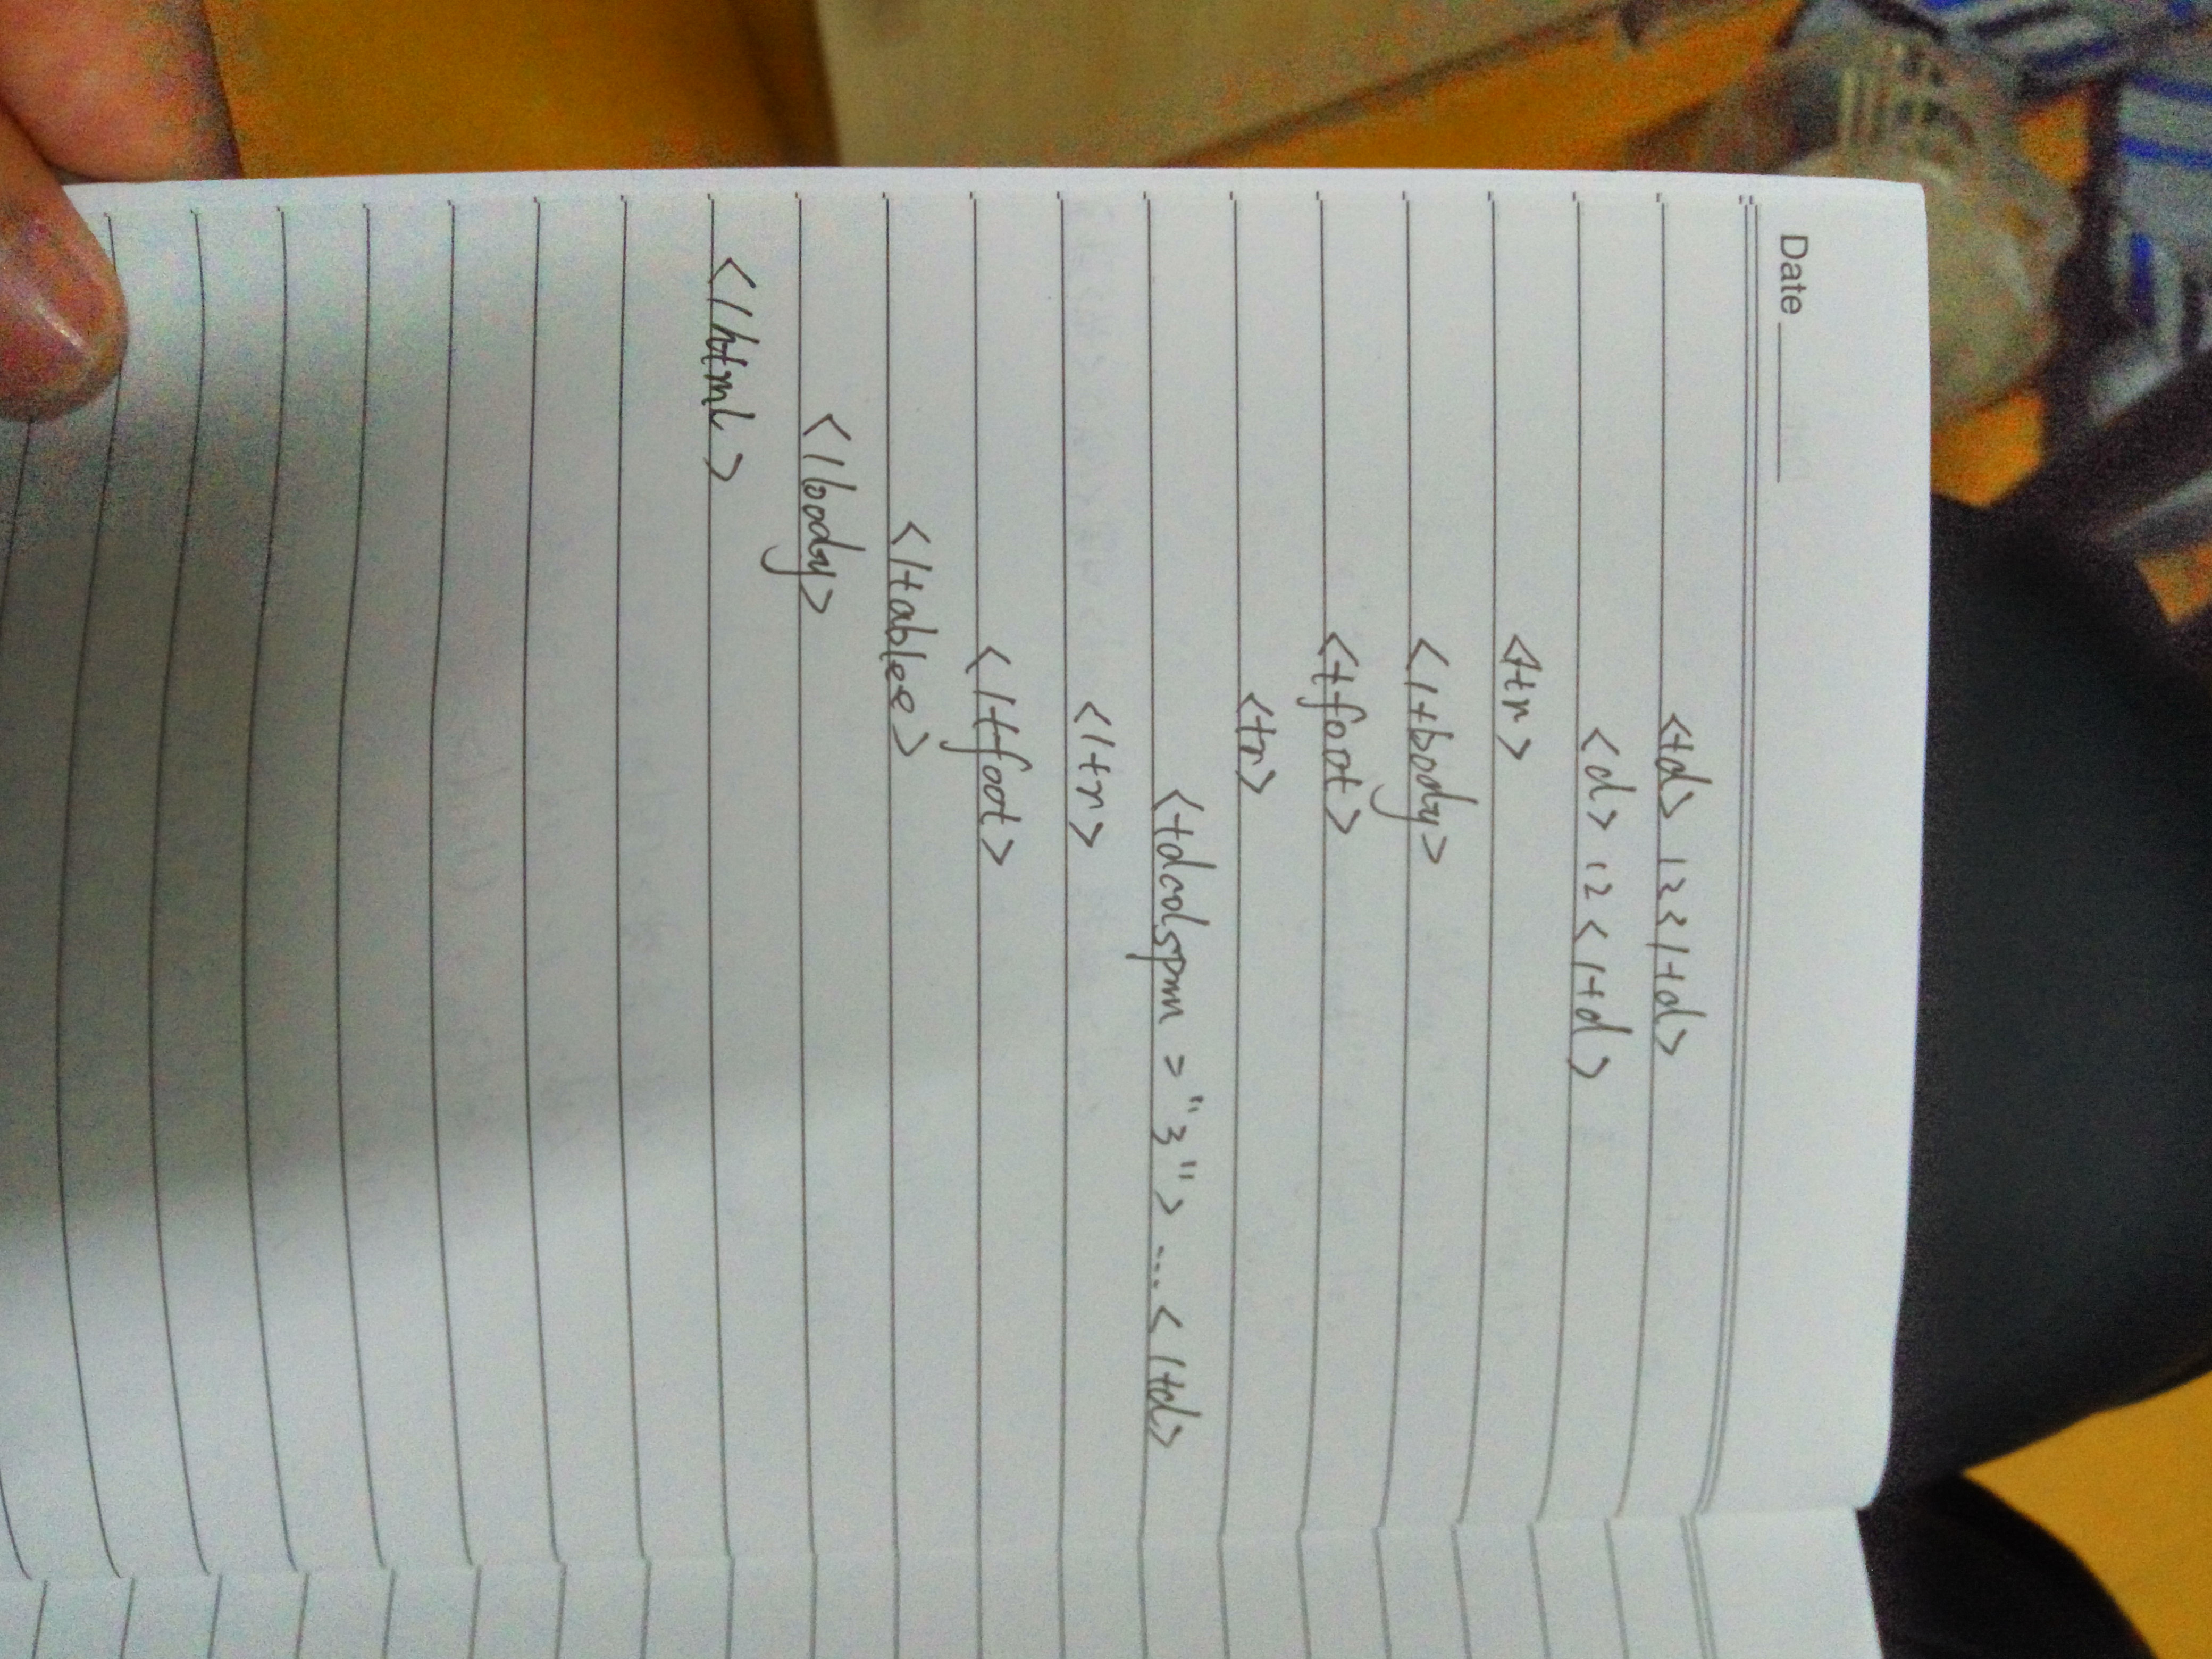 Date
<td> 12</td>
<d> 12 </td>
</tr>
</tbody>
<tfoot>
<tr>
<tdcolspan = "3"> .... </td>
</tr>
</tfoot>
</tablee>
</body>
</html>